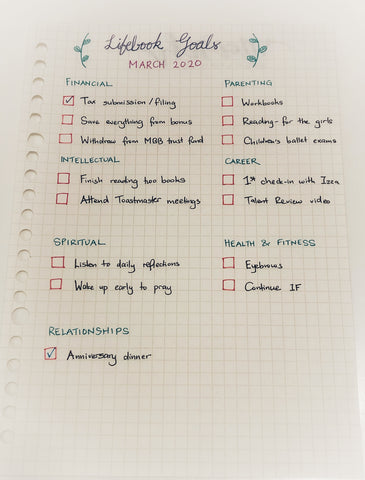 Lifebook Goals
MARCH 2020
FINANCIAL
Tax submission/filing
Save everything from bonus
Withdraw from MBB trust fund
PARENTING
Workbooks
Reading - for the girls
Children's ballet exams
INTELLECTUAL
Finish reading two books
Attend Toastmaster meetings
CAREER
1st check-in with Izza
Talent Review video
SPIRITUAL
Listen to daily reflections
Wake up early to pray
HEALTH & FITNESS
Eyebrows
Continue IF
RELATIONSHIPS
Anniversary dinner